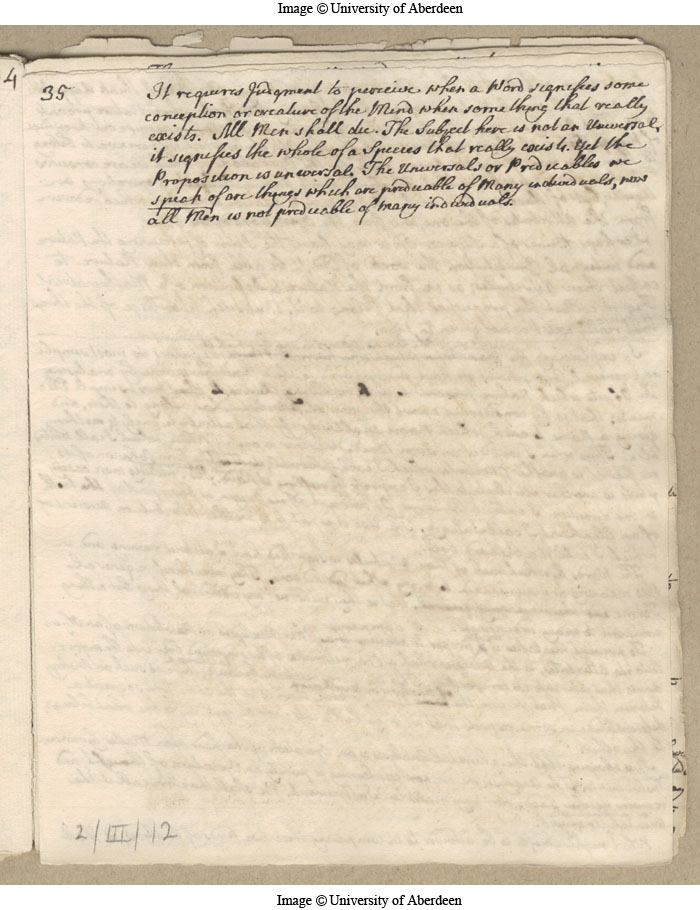 Image © University of Aberdeen
4
35
It requires Judgment to perceive when a Word signifies some
conception or creature of the Mind when some thing that really
exists. All Men shall die. The Subject here is not an Universal,
it signifies the whole of a Species that really exists. Yet the
Proposition is universal. The Universals or Predicables we
speak of are things which are predicable of Many individuals, now
all Men is not predicable of many individuals.
2/III/12
Image © University of Aberdeen